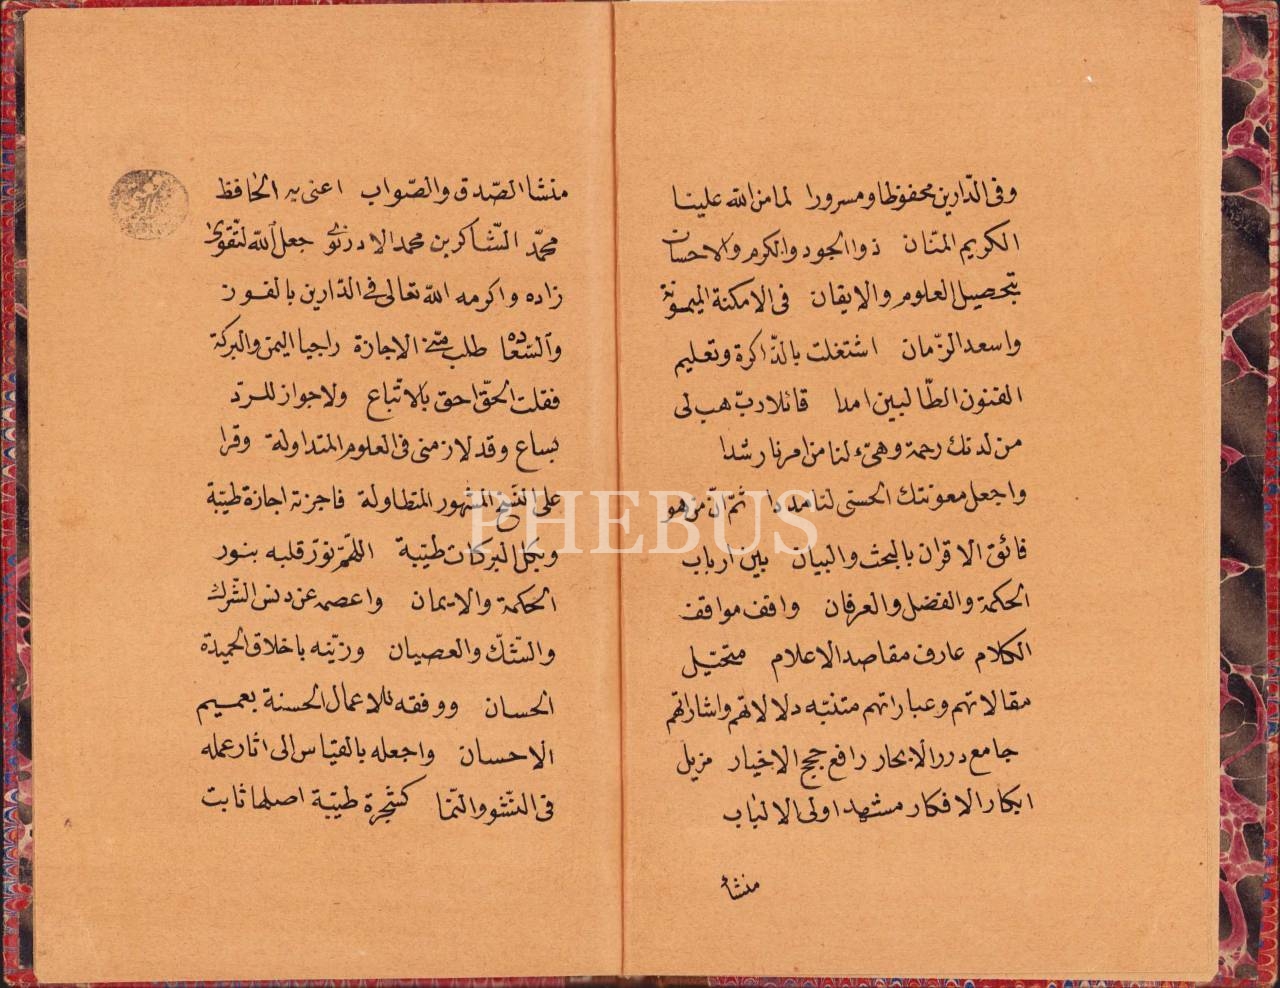 وفى الدّارين محفوظا ومسرورا لما من الله علينا
الكريم المنّان ذوالجود والكرم والاحسان
بتحصيل العلوم والايقان فى الامكنة الميمونة
واسعد الزّمان اشتغلت بالذّاكرة وتعليم
الفنون الطّالبين امدا قائلا ربّ هب لى
من لدنك رحمة وهيّء لنا من امرنا رشدا
واجعل معونتك الحسنى لنا مددا ثمّ انّ من هو
فائق الاقران بالبحث والبيان بين ارباب
الحكمة والفضل والعرفان واقف مواقف
الكلام عارف مقاصد الاعلام متخيّل
مقالاتهم وعباراتهم متنبّه دلالاتهم واشاراتهم
جامع درر الابحار رافع حجج الاخيار مزيل
ابكار الافكار مشتهد اولى الالباب
منشأ
منشا الصّدق والصّواب اعنى به الحافظ
محمّد الشّاكر بن محمد الادرنوى جعل الله لتقوى
زاده واكرمه الله تعالى فى الدّارين بالفوز
والسّعاده طلب منّى الاجازة راجيا اليمن والبركة
فقلت الحقّ احق بالاتّباع ولاجواز للرّد
بساع وقد لازمنى فى العلوم المتداولة وقرا
على النّهج المشهور المتطاولة فاجزته اجازة طيّبة
وبكل البركات طيّبة اللهمّ نوّر قلبه بنور
الحكمة والايمان واعصمه عن دنس الشّرك
والشّكّ والعصيان وزيّنه باخلاق الحميدة
الحسان ووفقه للاعمال الحسنة بعميم
الاحسان واجعله بالقياس الى اثار عمله
فى النّشو والنّما كشجرة طيّبة اصلها ثابت
PHEBUS